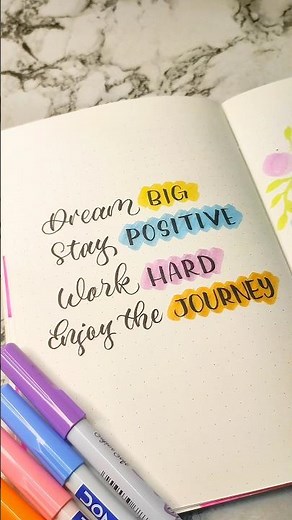 Dream BIG
Stay POSITIVE
Work HARD
Enjoy the JOURNEY